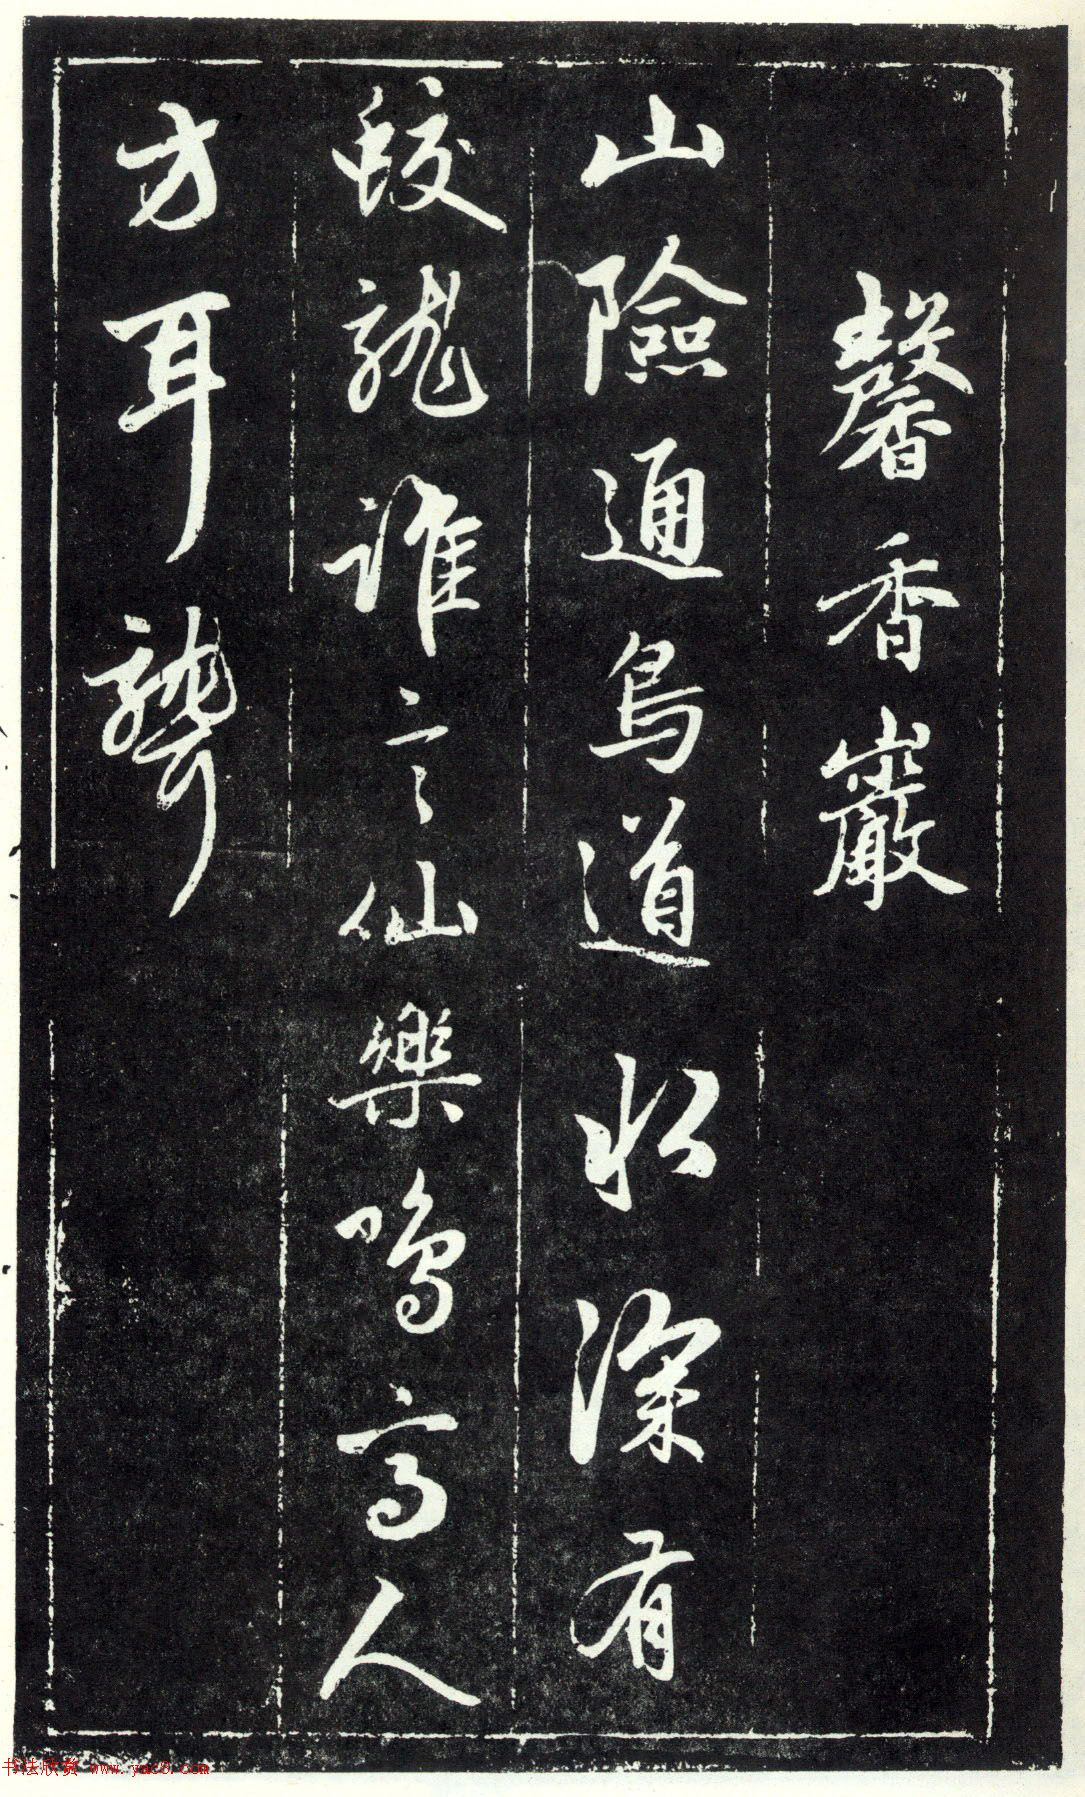 馨香巖
山險通鳥道水深有
蛟龍誰言仙樂鳴高人
方耳聾
书法欣赏 www.yac8.com